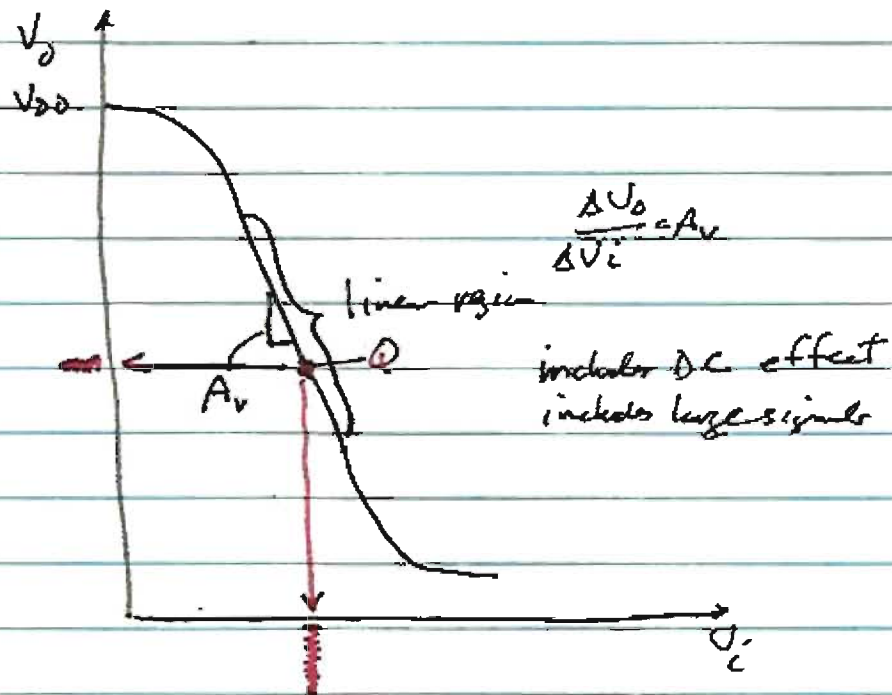 Vo
VDD
ΔVo
—— = Av
ΔVi
linear region
Q
Av
includes DC effect
includes large signals
Vi